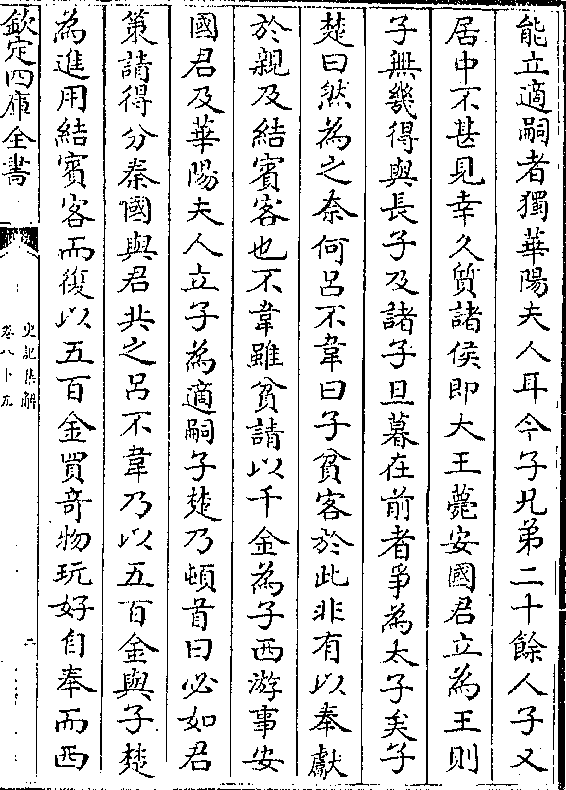 能立適嗣者獨華陽夫人耳今子兄弟二十餘人子又
居中不甚見幸久質諸侯即大王薨安國君立為王則
子無幾得與長子及諸子旦暮在前者爭為太子矣子
楚曰然為之奈何呂不韋曰子貧客於此非有以奉獻
於親及結賓客也不韋雖貧請以千金為子西游事安
國君及華陽夫人立子為適嗣子楚乃頓首曰必如君
策請得分秦國與君共之呂不韋乃以五百金與子楚
為進用結賓客而復以五百金買奇物玩好自奉而西
欽定四庫全書
史記集解
卷八十五
二